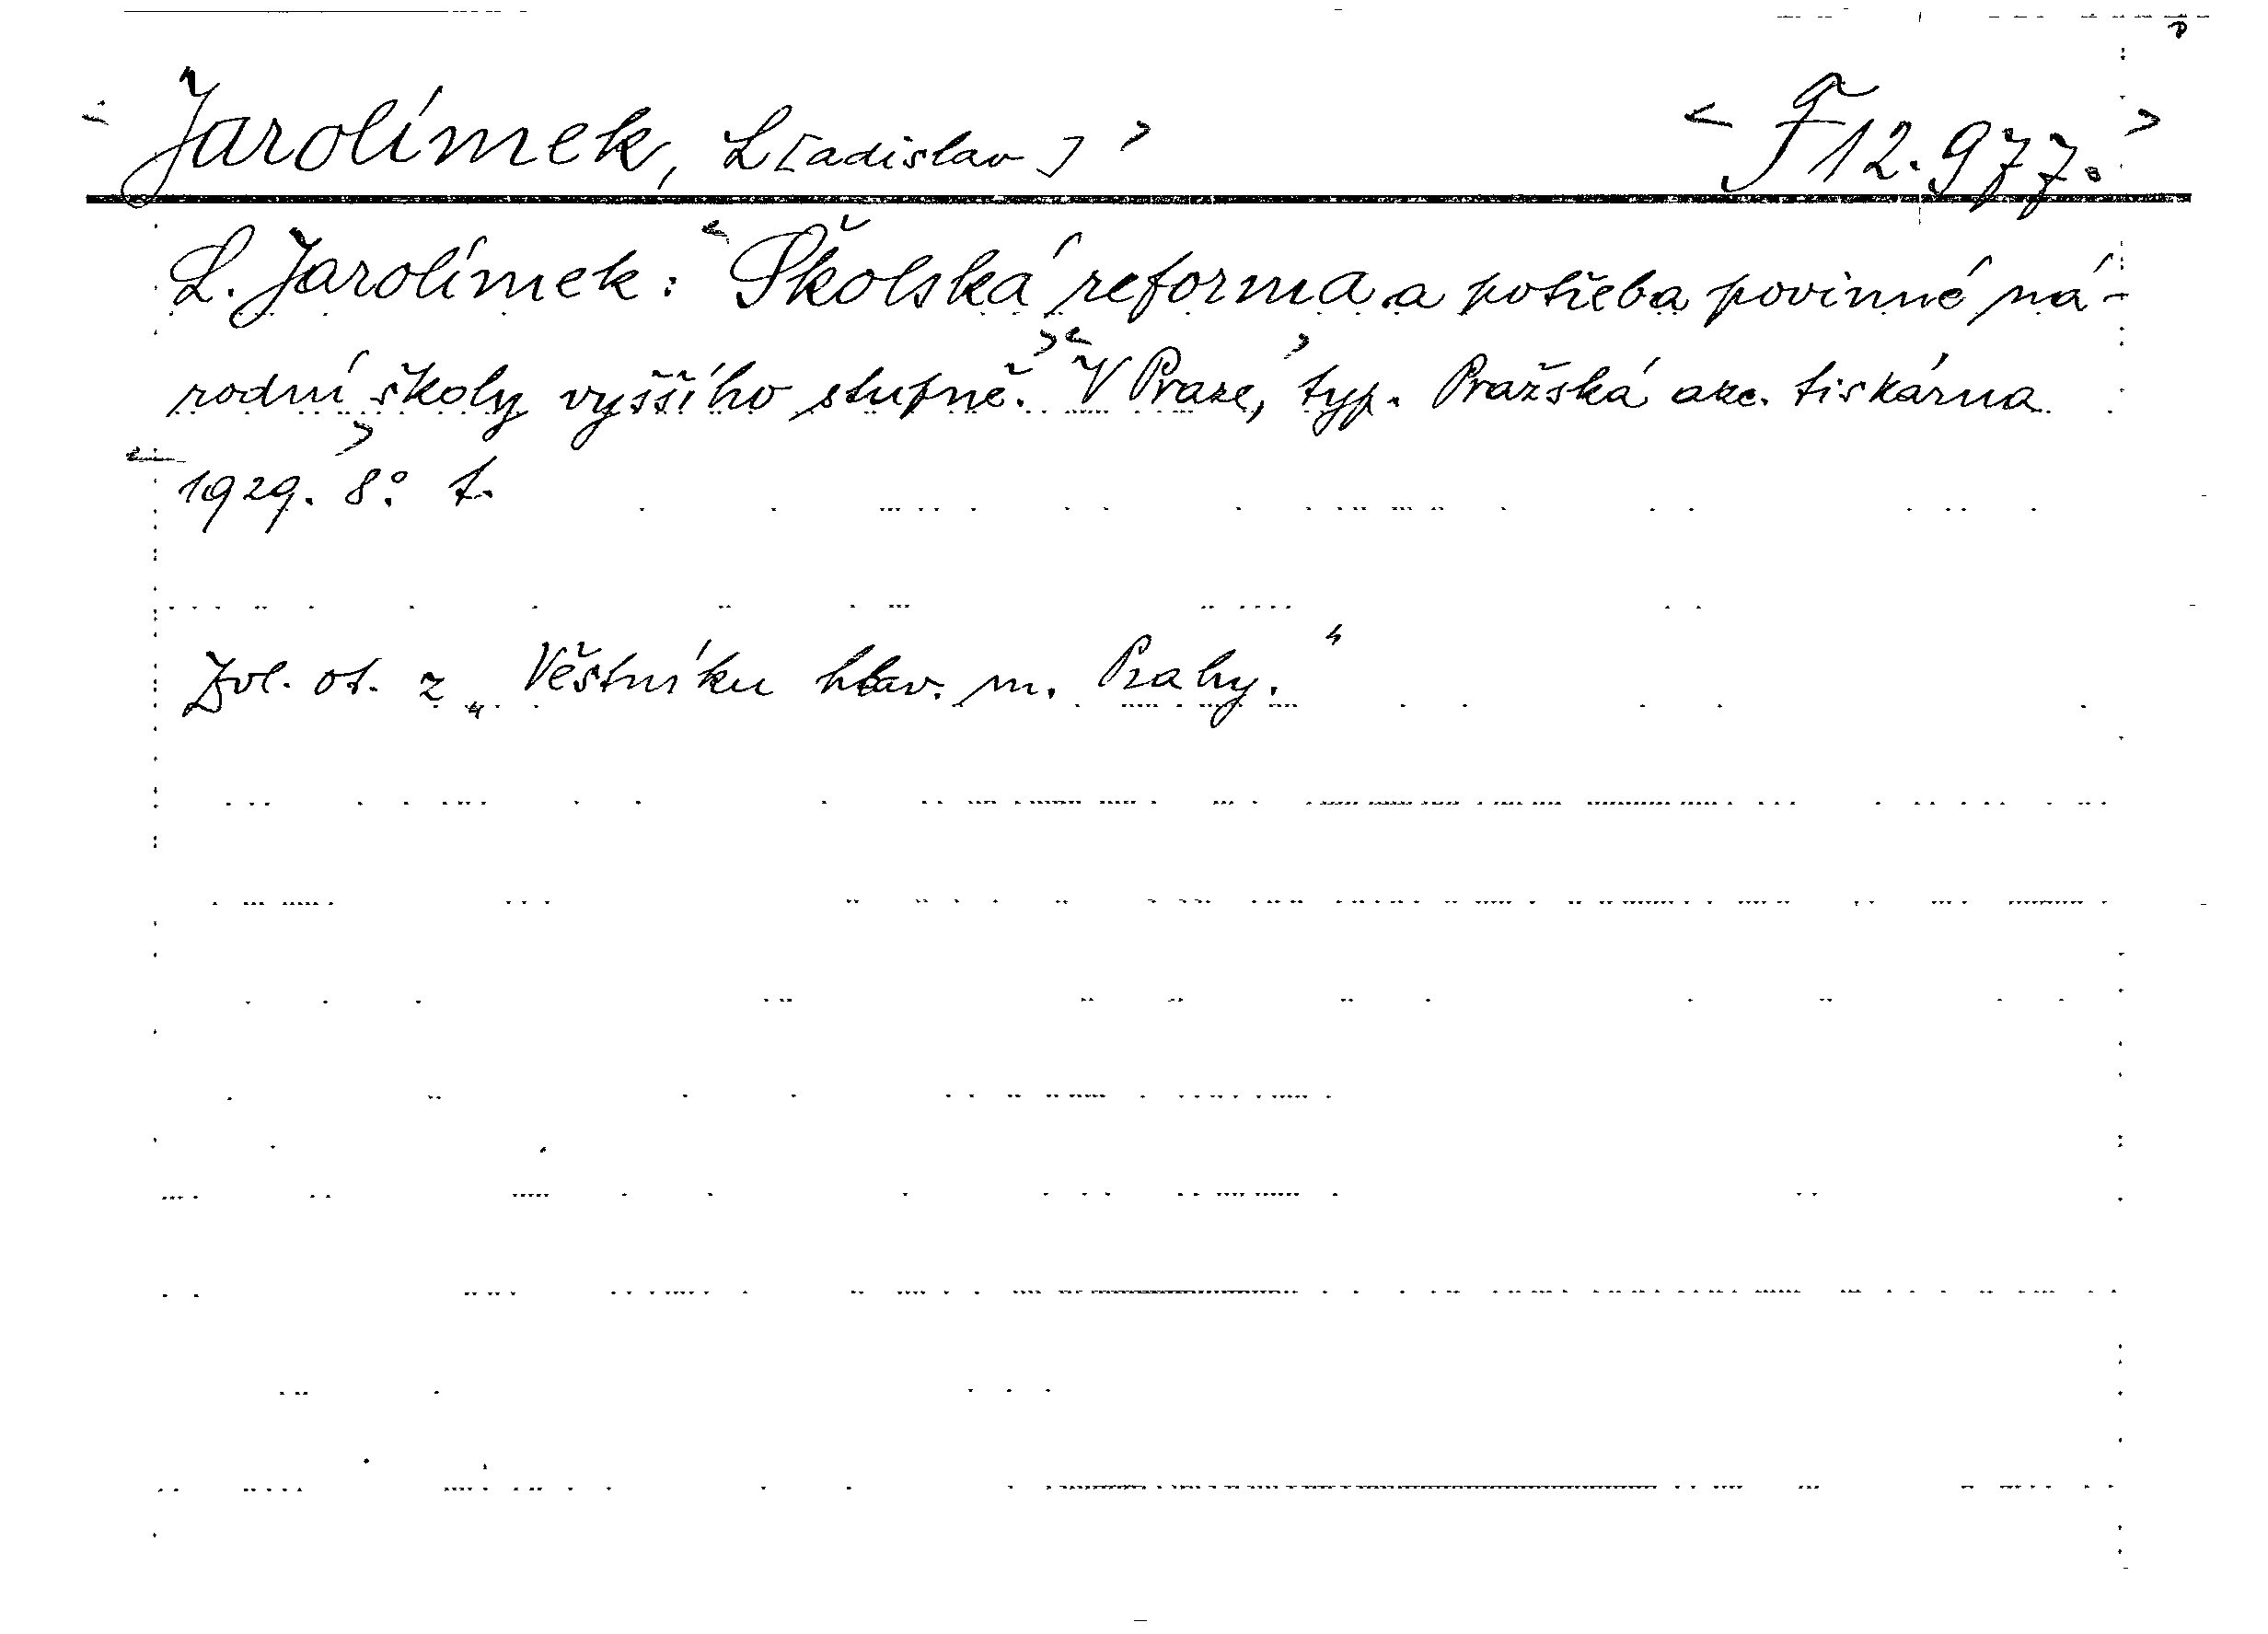 <Jarolímek, L[adislav]> <F 12.977.>
L. Jarolímek: <Školská reforma a potřeba povinné ná-
rodní školy vyššího stupně.> <V Praze,> typ. Pražská akc. tiskárna
<1929.> 8°. t.
Zvl. ot. z „Věstníku hlav. m. Prahy."